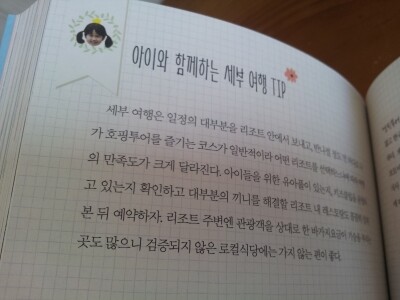 아이와 함께하는 세부 여행 TIP
세부 여행은 일정의 대부분을 리조트 안에서 보내고, 반나절
가 호핑투어를 즐기는 코스가 일반적이라 어떤 리조트를 선택
의 만족도가 크게 달라진다. 아이들을 위한 유아풀이 있는지,
고 있는지 확인하고 대부분의 끼니를 해결할 리조트 내 레스토랑도
본 뒤 예약하자. 리조트 주변엔 관광객을 상대로 한 바가지요금이
곳도 많으니 검증되지 않은 로컬식당에는 가지 않는 편이 좋다.